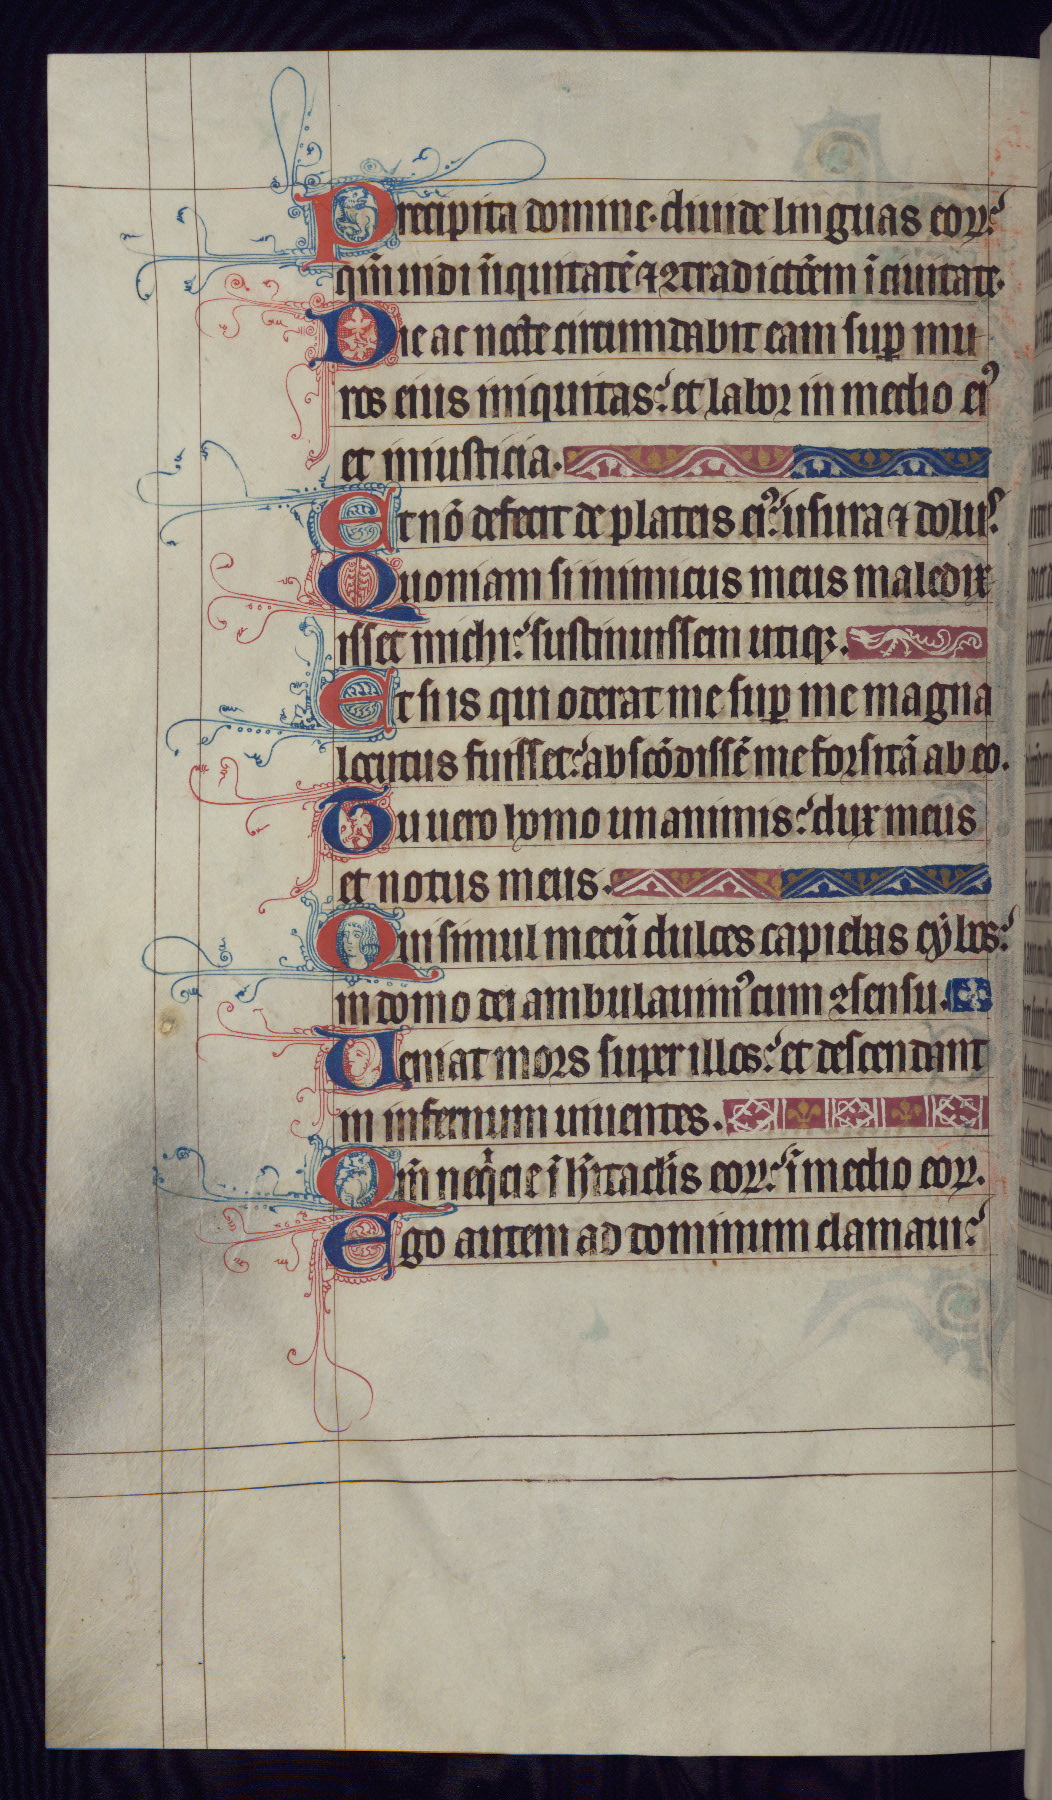 Precipita domine· diuide linguas eoꝝ:
qm̄ uidi iniquitatē ⁊ ꝯtradictōem ī ciuitate·
Die ac nocte circumdabit eam suꝑ mu
ros eius iniquitas: et labor in medio eiꝰ
et iniusticia·
Et nō defecit de plateis eiꝰ: usura ⁊ dolus:
Quoniam si inimicus meus maledix
isset michi: sustinuissem utiqꝫ·
Et si is qui oderat me suꝑ me magna
locutus fuisset: abscōdissē me forsitā ab eo·
Tu uero homo unanimis: dux meus
et notus meus·
Qui simul mecū dulces capiebas cybos:
in domo dei ambulauimꝰ cum ꝯsensu·
Ueniat mors super illos: et descendant
in infernum uiuentes·
Qm̄ neqͥcie ī hītaclīs eoꝝ: ī medio eoꝝ·
Ego autem ad dominum clamaui: